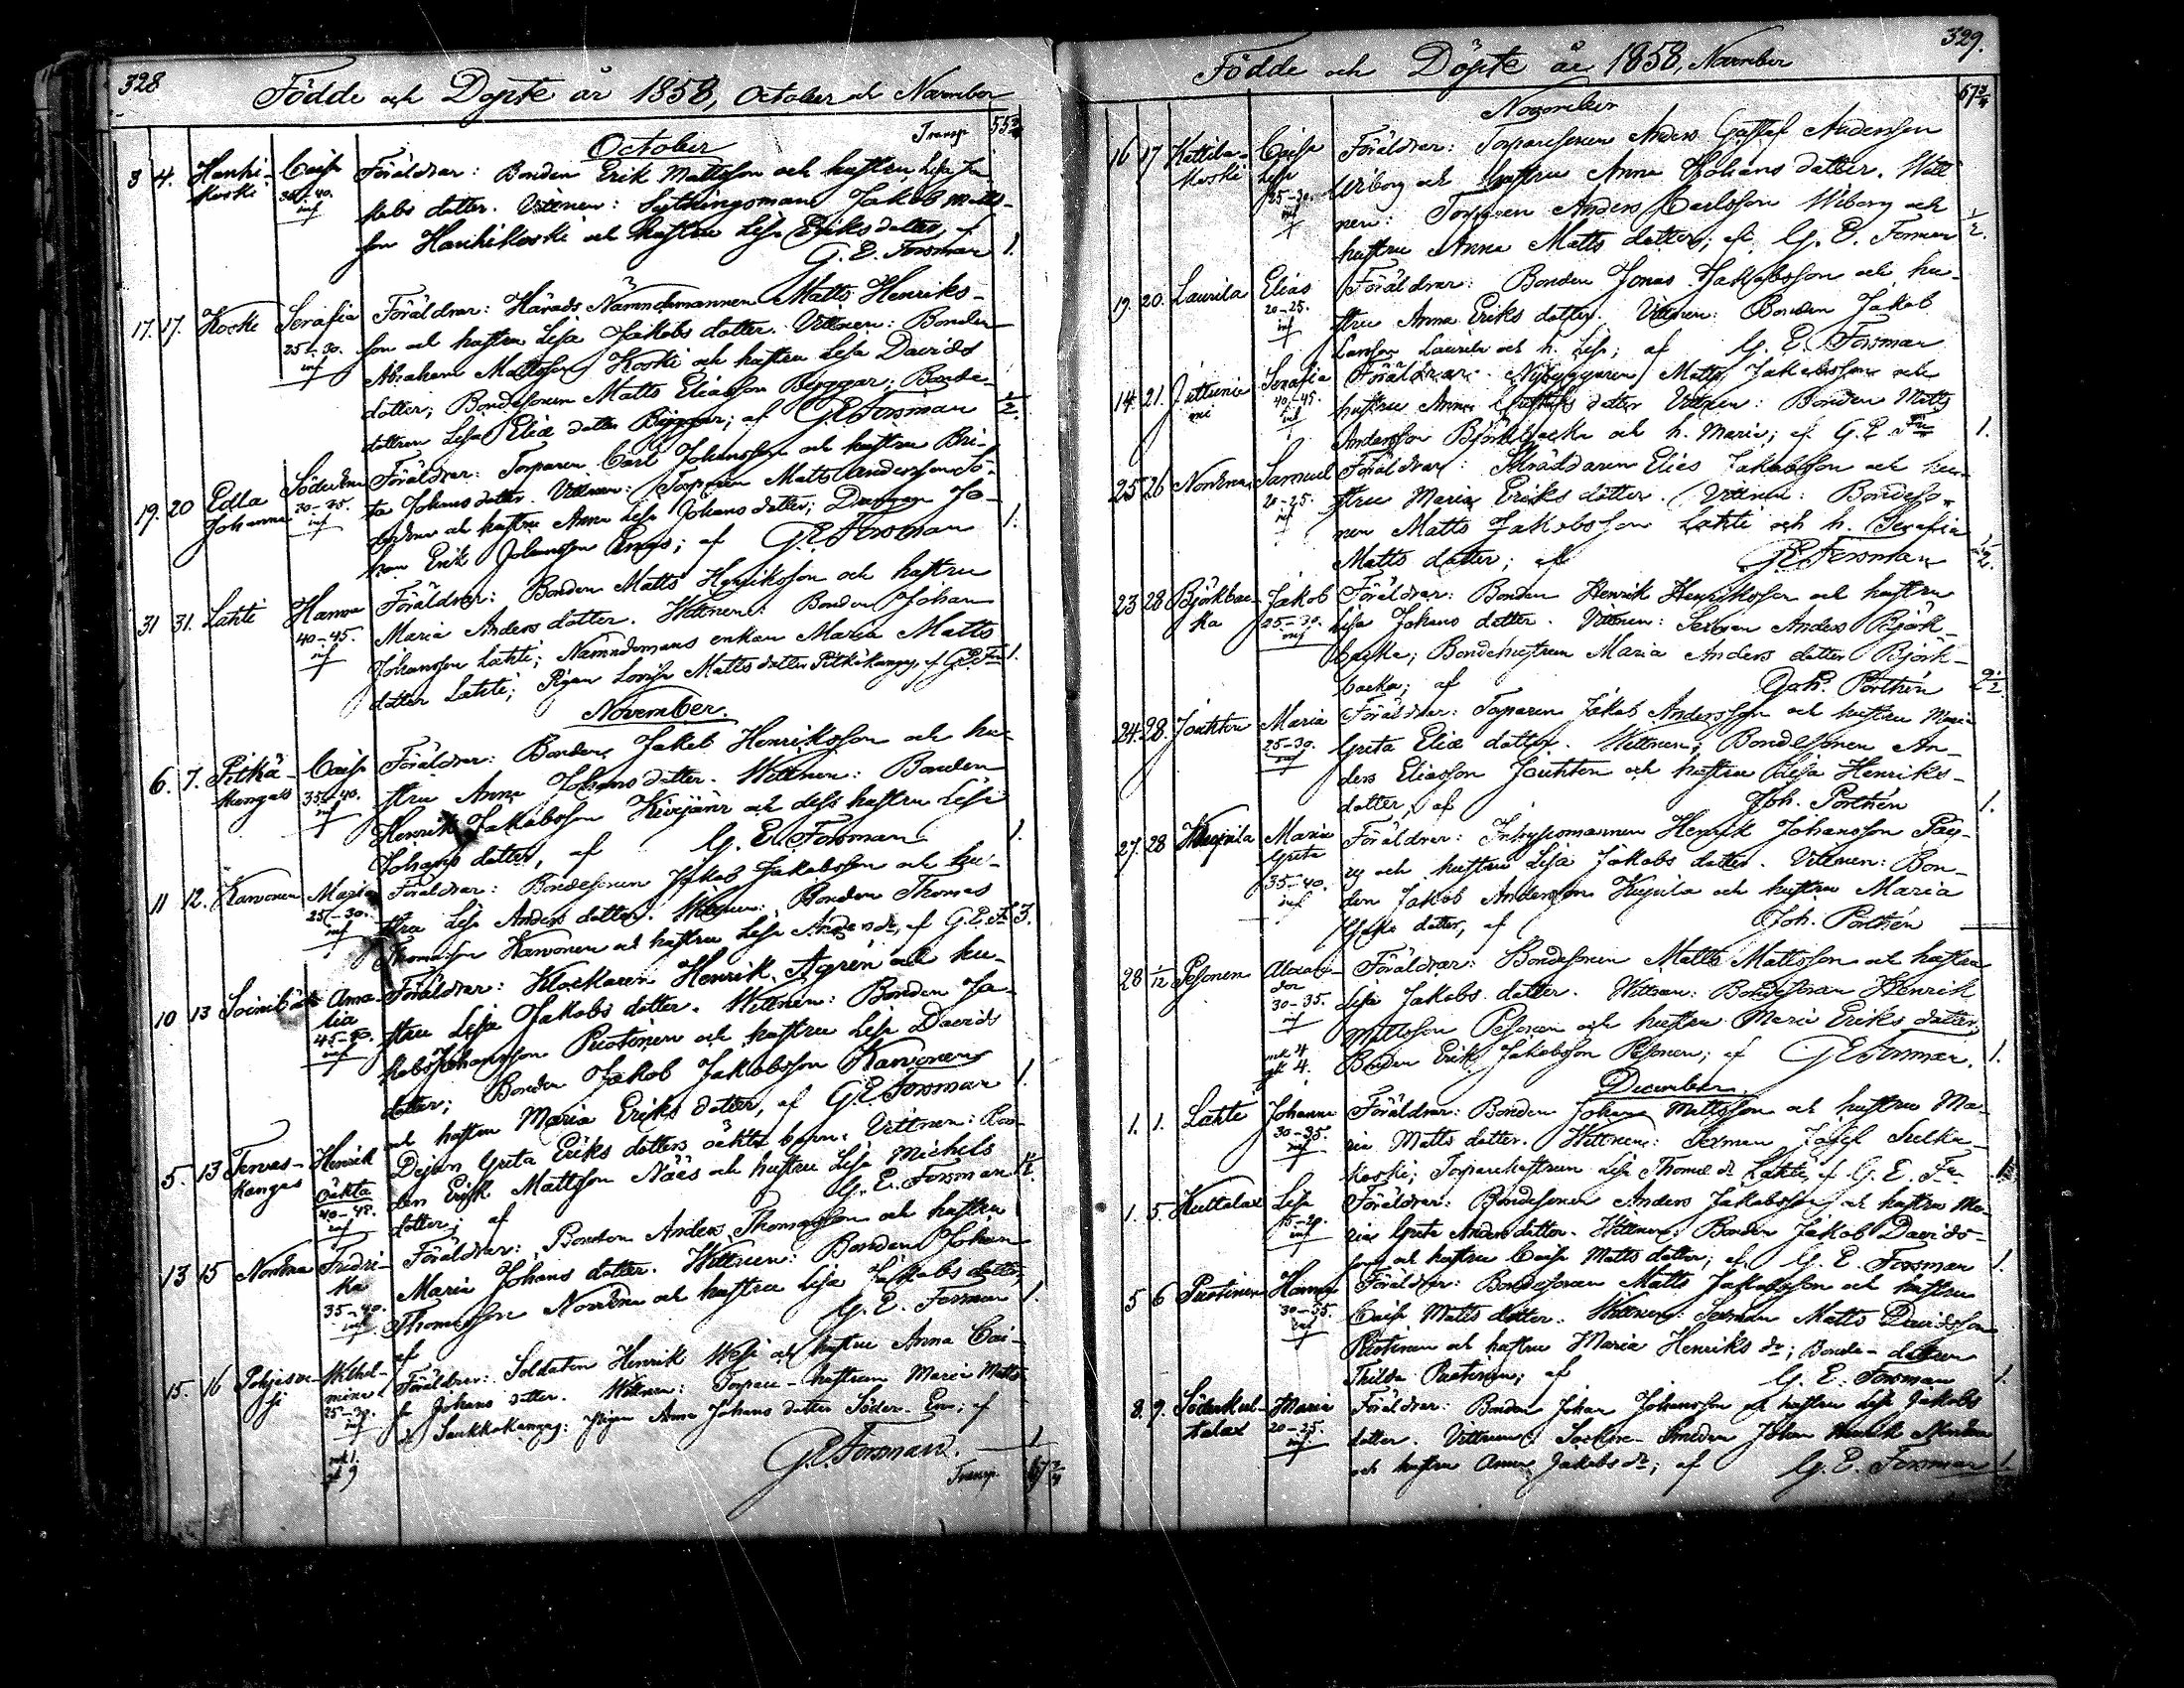 328
Födde och Döpte år 1858, October och November
Transp 55 3/4
October
3 4. Hanhi- Caisa Föräldrar: Bonden Erik Mattsson och hustru Lisa Ja-
koski 35-40. kobs dotter. Vittnen: Mattsson
inf son Hanhikoski och hustru Lisa Eriks dotter, af
G. E. Forsman 1.
17. 17. Koski Serafia Föräldrar: Härads Nämndemannen Matts Henriks-
25-30. son och hustru Lisa Jakobs dotter. Vittnen: Bonden
inf Abraham Mattsson Koski och hustru Lisa Davids
dotter; Bondesonen Matts Eliasson Byggar; Bonde-
dottren Lisa Eliæ dotter Byggar; af G. E. Forsman 1/2.
19. 20 Edla Söder Föräldrar: Torparen Carl Johansson och hustru Bri-
Johanna 30-35. ta Johans dotter. Vittnen: Torparen Matts Andersson Sö-
inf och hustru Anna Lisa Johans dotter; Drängen Jo-
han Erik Johansson; af G. E. Forsman 1.
31 31. Lahti Hanna Föräldrar: Bonden Matts Henriksson och hustru
40-45. Maria Anders dotter. Vittnen: Bonden Johan
inf Johansson Lahti; Nämndemans enkan Maria Matts
dotter Lahti; Pigan Lovisa Matts dotter Pitkäkangas, af G. E. Fn 1.
November.
6. 7. Pitkä- Caisa Föräldrar: Bonden Jakob Henriksson och hu-
kangas 35-40. stru Anna Johans dotter. Vittnen: Bonden
inf Henrik Jakobsson Kivijärvi och dess hustru Lisa
Johans dotter, af G. E. Forsman 1.
11 12. Karvonen Maria Föräldrar: Bondesonen Jakob Jakobsson och hu-
25-30. stru Lisa Anders dotter. Vittnen: Bonden Thomas
inf Thomasson Karvonen och hustru Lisa Anders dr, af G. E. Fn
10 13 Soini Ama- Föräldrar: Klockaren Henrik Agrén och hu-
lia stru Lisa Jakobs dotter. Vittnen: Bonden Ja-
45-50. kob Johansson Puotinen och hustru Lisa Davids
inf dotter; Bonden Jakob Jakobsson Karvonen
och hustru Maria Eriks dotter, af G. E. Forsman 1.
5. 13 Tervas- Henrik Pigan Greta Eriks dotters oäkta barn. Vittnen: Bon-
kangas oäkta den Erik Mattsson Näes och hustru Lisa Michels
inf dotter; af G. E. Forsman 1/2.
13 15 Norrena Fredri- Föräldrar: Bonden Anders Thomasson och hustru
ka Maria Johans dotter. Vittnen: Bonden Johan
35-40. Thomasson Norrena och hustru Lisa Jakobs dotter,
inf af G. E. Forsman 1.
15. 16 Pohjas Wilhel- Föräldrar: Soldaten Henrik och hustru Anna Cai-
mina sa Johans dotter. Vittnen: Torpare-hustrun Maria Matts
25-30. dr Saukkokangas; Pigan Anna Johans dotter Söder; af
inf G. E. Forsman. 1
mk 1.
qk 9 Transp. 67 3/4
329.
Födde och Döpte år 1858, November
67 3/4
November
16 17 Kattila- Caisa Föräldrar: Torparesonen Anders Gustaf Andersson
koski Lisa Wiborg och hustru Anna Johans dotter. Vitt
25-30. nen: Torparen Anders Carlsson Wiborg och
inf hustru Anna Matts dotter; af G. E. Forsman 1/2.
19. 20. Laurila Elias Föräldrar: Bonden Jonas Jakobsson och hu-
20-25. stru Anna Eriks dotter. Vittnen: Bonden Jakob
inf Larsson Laurila och h. Lisa; af G. E. Forsman
14. 21. Serafia Föräldrar: Nybyggaren Matts Jakobsson och
40-45. hustru Anna dotter Vittnen: Bonden Matts
inf Andersson Björkbacka och h. Maria; af G. E. Fn 1.
25 26 Norrena Samuel Föräldrar: Skräddaren Elias Jakobsson och hu-
20-25. stru Maria Eriks dotter. Vittnen: Bondeso-
inf nen Matts Jakobsson Lahti och h. Serafia
Matts dotter; af G. E. Forsman 1/2.
23 28 Björkbac- Jakob Föräldrar: Bonden Henrik Henriksson och hustru
ka 25-30. Lisa Johans dotter. Vittnen: Sexman Anders Björk-
inf backa; Bondehustrun Maria Anders dotter Björk-
backa; af Joh. Porthén
24. 28. Jouhten Maria Föräldrar: Torparen Jakob Andersson och hustru Maria
25-30. Greta Eliæ dotter. Vittnen: Bondesonen An-
inf ders Eliasson Jouhten och hustru Lisa Henriks-
dotter, af Joh. Porthén 1.
27. 28 Kujala Maria Föräldrar: Inhysesmannen Henrik Johansson
Greta och hustru Lisa Jakobs dotter. Vittnen: Bon-
35-40. den Jakob Andersson Kujala och hustru Maria
inf dotter, af Joh. Porthén
28 1/12 Pesonen Alexan- Föräldrar: Bondesonen Matts Mattsson och hustru
der Lisa Jakobs dotter. Vittnen: Bondesonen Henrik
30-35. Mattsson Pesonen och hustru Maria Eriks dotter,
inf Bonden Erik Jakobsson Pesonen; af G. E. Forsman. 1.
mk 4
qk 4.
December.
1. 1. Lahti Johanna Föräldrar: Bonden Johan Mattsson och hustru Ma-
30-35. ria Matts dotter. Vittnen: Sexman Josef
inf koski; Torparehustrun Lisa Thomæ dr Lahti, af G. E. Fn
1. 5. Kuttalax Lisa Föräldrar: Bondesonen Anders Jakobsson och hustru Ma-
15-20. ria Greta Anders dotter. Vittnen: Bonden Jakob Davids-
inf son och hustru Caisa Matts dotter; af G. E. Forsman 1.
5 6 Puotinen Hanna Föräldrar: Bondesonen Matts Jakobsson och hustru
30-35. Caisa Matts dotter. Vittnen: Sexman Matts Davidsson
inf Puotinen och hustru Maria Henriks dr; Bonde-dottren
Thilda Puotinen; af G. E. Forsman 1.
8. 9. Söderkul- Maria Föräldrar: Bonden Johan Johansson och hustru Lisa Jakobs
talax 20-25. dotter. Vittnen: Socken-Smeden Johan Henrik
inf och hustru Anna Jakobs dr; af G. E. Forsman 1.